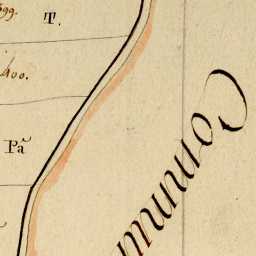 599.
T.
400.
Pã
Commun